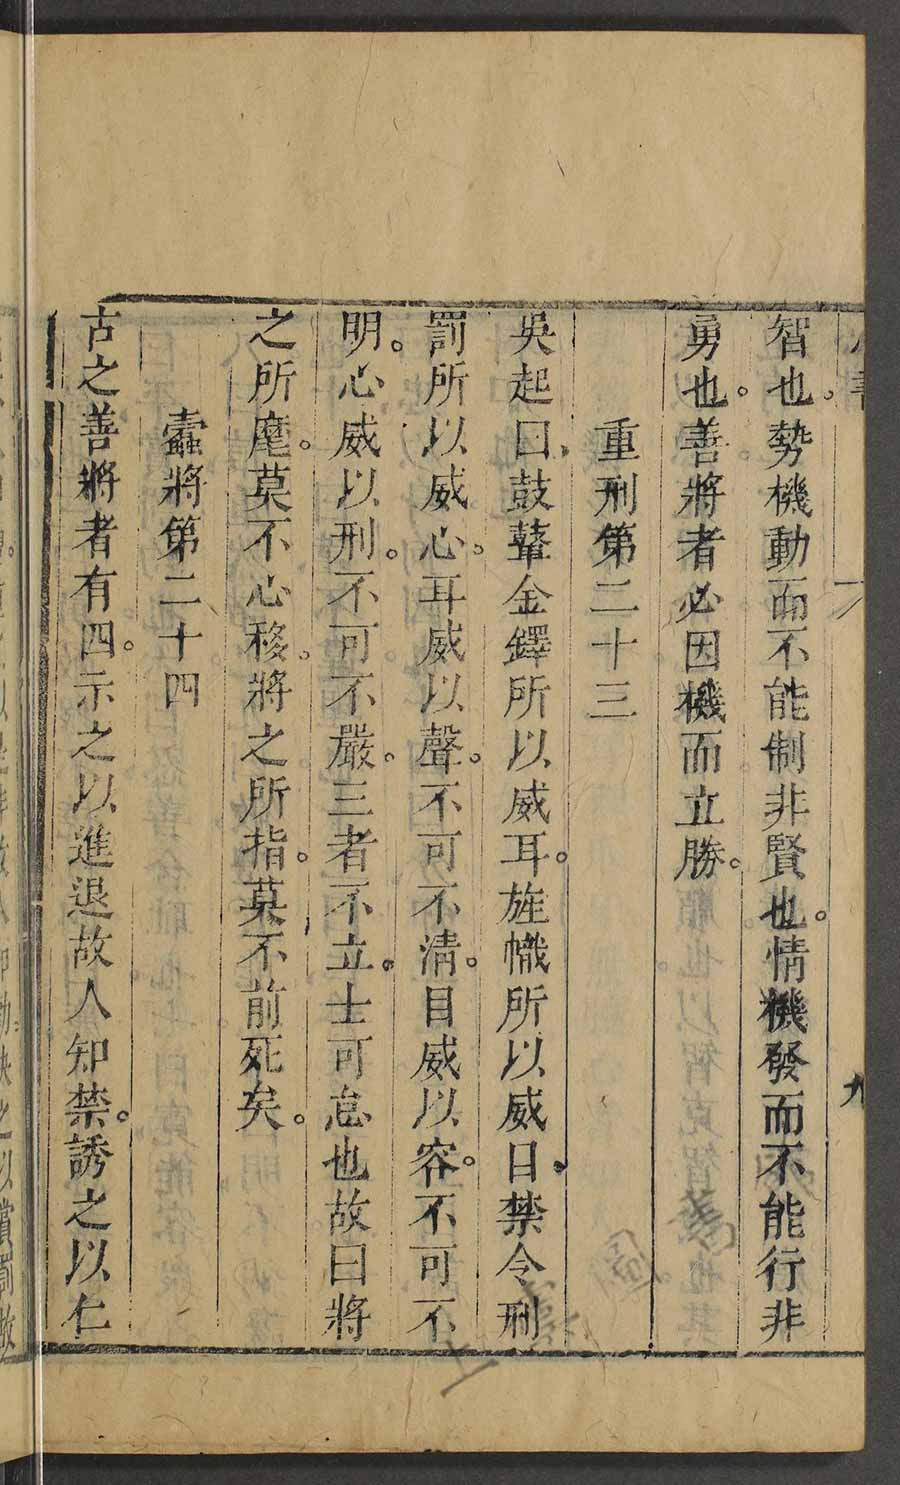 智也。勢機動而不能制非賢也。情機發而不能行非
勇也。善將者必因機而立勝。
重刑第二十三
吳起曰鼓鼙金鐸所以威耳。旌幟所以威日。禁令刑
罰所以威心。耳威以聲。不可不清。目威以容。不可不
明。心威以刑。不可不嚴。三者不立。士可怠也故曰將
之所麾。莫不心移。將之所指。莫不前死矣。
蠹將第二十四
古之善將者有四。示之以進退故人知禁。誘之以仁